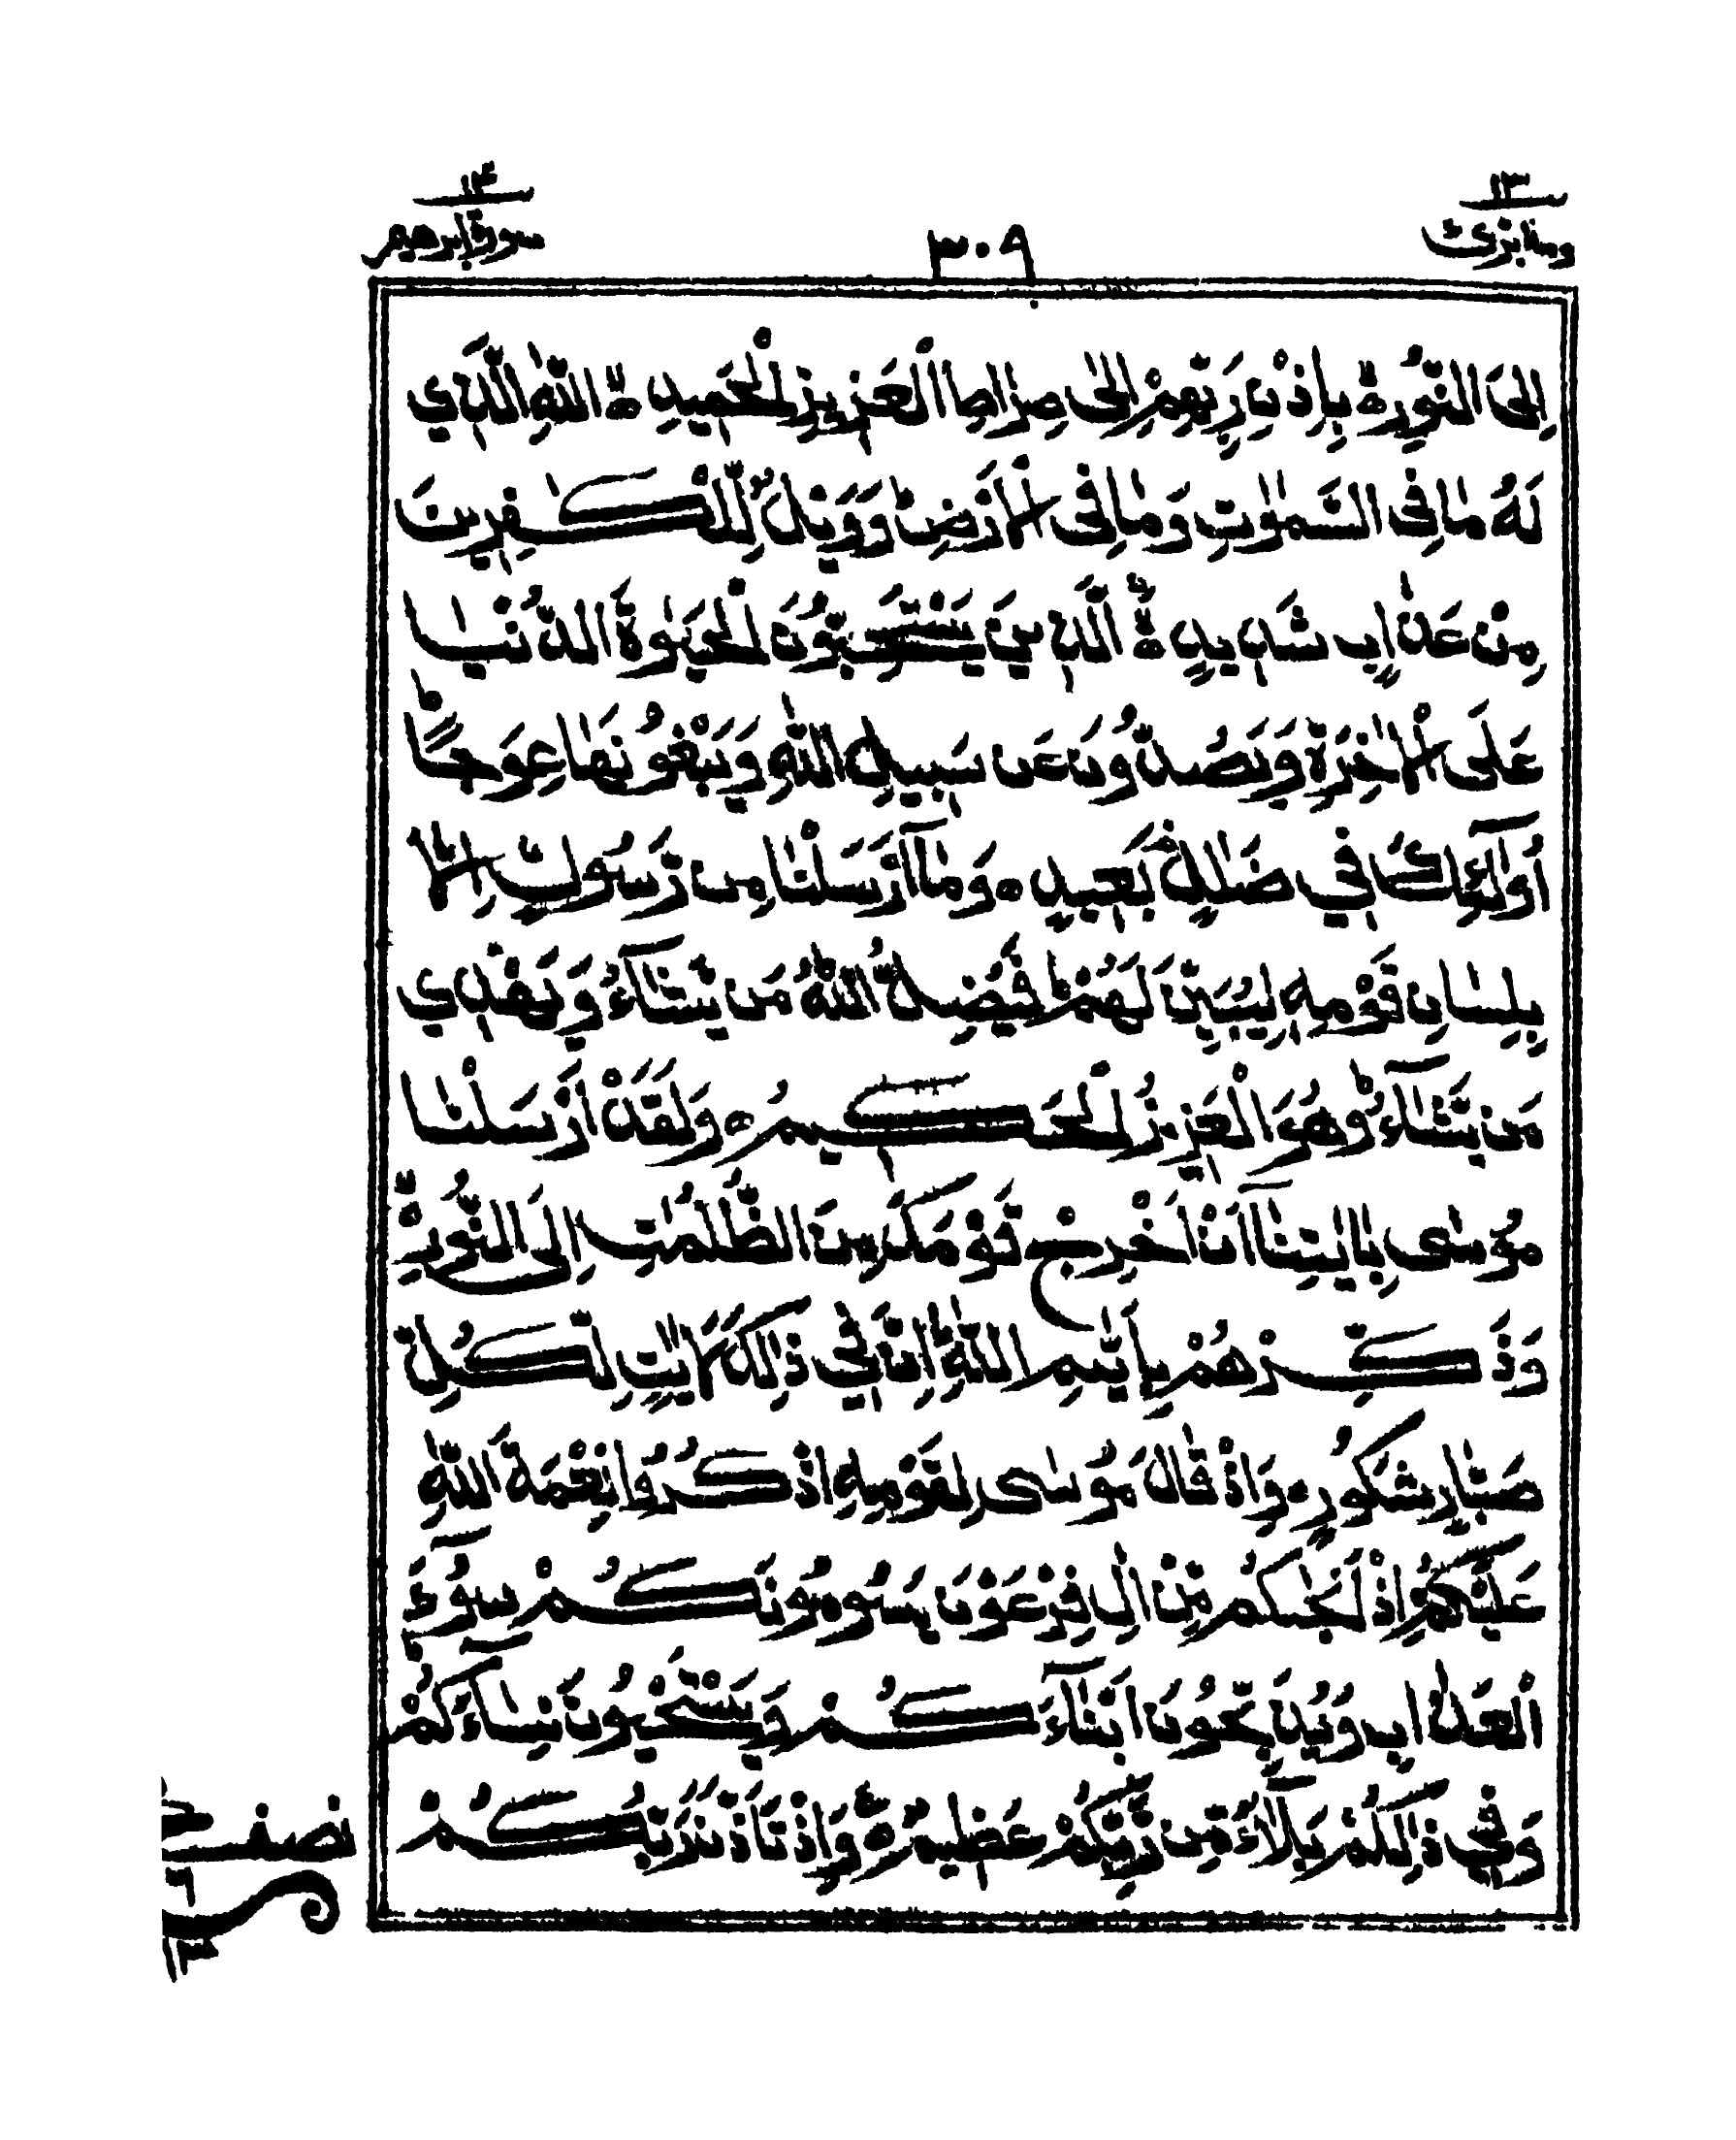 ١٣ ١٤
ومآ ابرئ ٣٠٩ سورة ابرهيم
اِلَى النُّوْرِ ۙ بِاِذْنِ رَبِّهِمْ اِلٰى صِرَاطِ الْعَزِيْزِ الْحَمِيْدِ ۙ اللّٰهِ الَّذِيْ
لَهٗ مَا فِى السَّمٰوٰتِ وَمَا فِى الْاَرْضِ ؕ وَوَيْلٌ لِّلْكٰفِرِيْنَ
مِنْ عَذَابٍ شَدِيْدِ ۙ اۨلَّذِيْنَ يَسْتَحِبُّوْنَ الْحَيٰوةَ الدُّنْيَا
عَلَى الْاٰخِرَةِ وَيَصُدُّوْنَ عَنْ سَبِيْلِ اللّٰهِ وَيَبْغُوْنَهَا عِوَجًا ؕ
اُولٰٓئِكَ فِيْ ضَلٰلٍۭ بَعِيْدٍ ۝ وَمَآ اَرْسَلْنَا مِنْ رَّسُوْلٍ اِلَّا
بِلِسَانِ قَوْمِهٖ لِيُبَيِّنَ لَهُمْ ؕ فَيُضِلُّ اللّٰهُ مَنْ يَّشَآءُ وَيَهْدِيْ
مَنْ يَّشَآءُ ؕ وَهُوَ الْعَزِيْزُ الْحَكِيْمُ ۝ وَلَقَدْ اَرْسَلْنَا
مُوْسٰى بِاٰيٰتِنَآ اَنْ اَخْرِجْ قَوْمَكَ مِنَ الظُّلُمٰتِ اِلَى النُّوْرِ ۙ
وَذَكِّرْهُمْ بِاَيّٰىمِ اللّٰهِ ؕ اِنَّ فِيْ ذٰلِكَ لَاٰيٰتٍ لِّكُلِّ
صَبَّارٍ شَكُوْرٍ ۝ وَاِذْ قَالَ مُوْسٰى لِقَوْمِهِ اذْكُرُوْا نِعْمَةَ اللّٰهِ
عَلَيْكُمْ اِذْ اَنْجٰىكُمْ مِّنْ اٰلِ فِرْعَوْنَ يَسُوْمُوْنَكُمْ سُوْٓءَ
الْعَذَابِ وَيُذَبِّحُوْنَ اَبْنَآءَكُمْ وَيَسْتَحْيُوْنَ نِسَآءَكُمْ ؕ
وَفِيْ ذٰلِكُمْ بَلَآءٌ مِّنْ رَّبِّكُمْ عَظِيْمٌ ۝ وَاِذْ تَاَذَّنَ رَبُّكُمْ
نصف
١٣